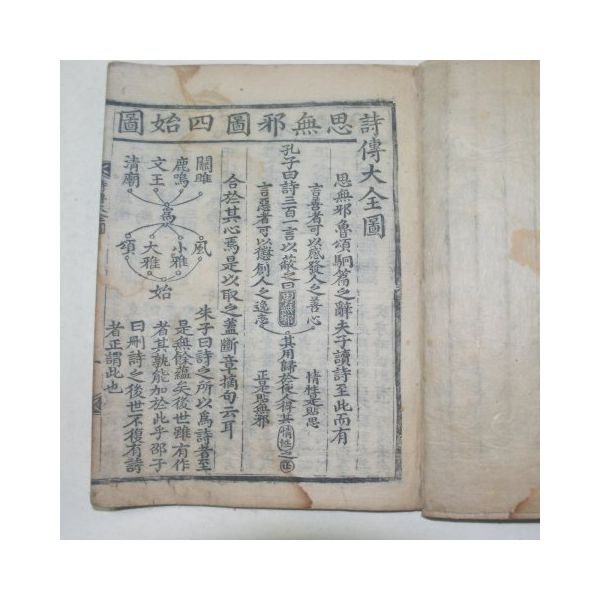 詩傳大全圖
思無邪圖
思無邪魯頌駉篇之辭夫子讀詩至此而有
言善者可以感發人之善心
情性是貼思
孔子曰詩三百一言以蔽之曰思無邪
其用歸於使人得其情性之正
言惡者可以懲創人之逸志
正是貼無邪
合於其心焉是以取之蓋斷章摘句云耳
四始圖
關雎
鹿鳴
文王
清廟
為
風
小雅
大雅
頌
始
朱子曰詩之所以為詩者至
是無餘蘊矣後世雖有作
者其孰能加於此乎邵子
曰刪詩之後世不復有詩
者正謂此也